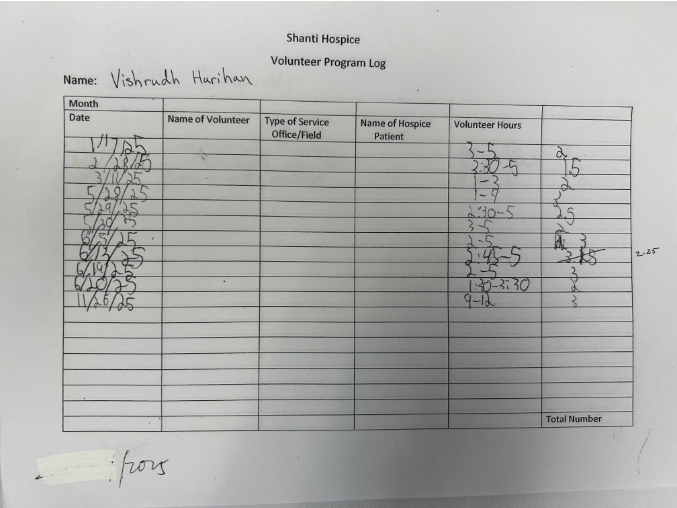 Shanti Hospice
Volunteer Program Log
Name: Vishrudh Harihan
Month
Date Name of Volunteer Type of Service Office/Field Name of Hospice Patient Volunteer Hours
1/17/25 3-5 2
2/28/25 3:30-5 1.5
3/11/25 1-3 2
5/28/25
5/29/25 2:30-5 2.5
3-5 2
6/5/25 2-5 3
6/13/25 2:45-5 2.25
6/19/25 2-5 3
6/20/25 1:30-3:30 2
11/26/25 9-12 3
Total Number
/2025